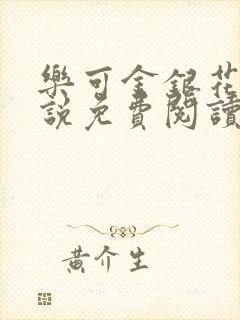 樂可金銀花
說免費閱讀
黃介生